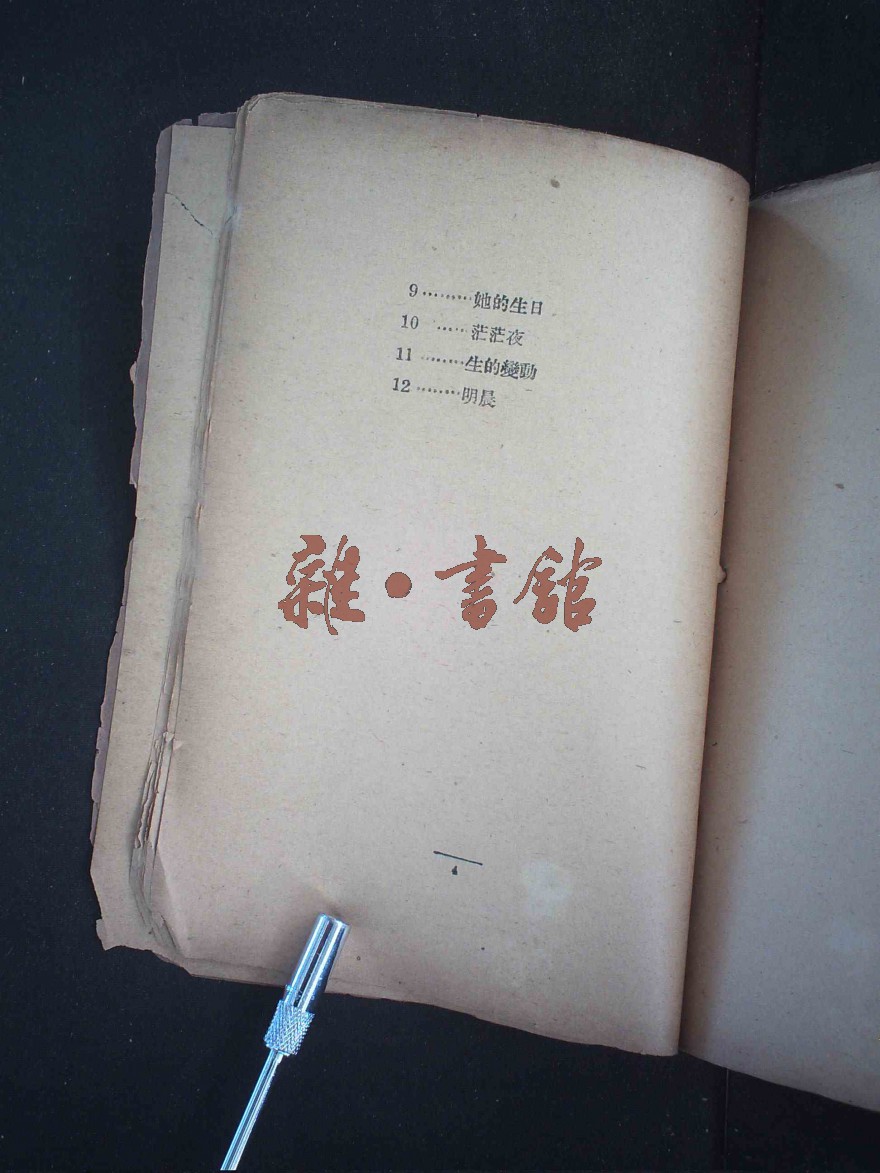 9………她的生日
10 ……茫茫夜
11 ………生的變動
12 ………明晨
雜·書館